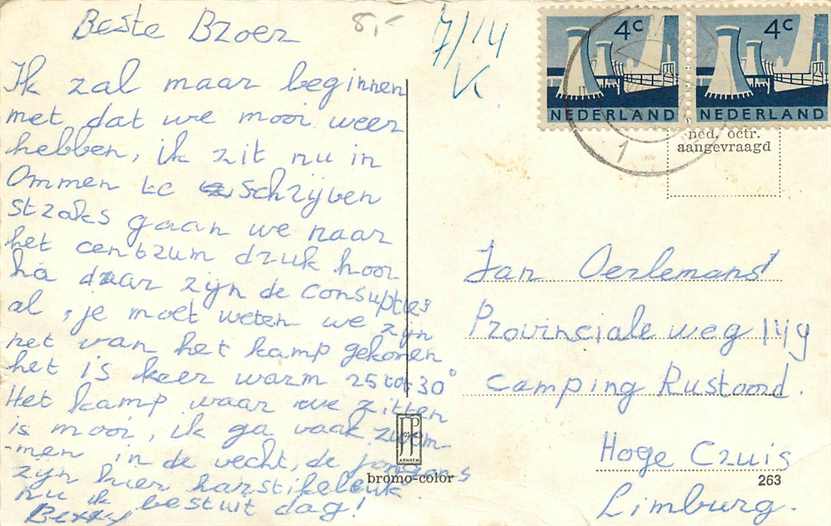 Beste Broer
Ik zal maar beginnen
met dat we mooi weer
hebben, ik zit nu in
Ommen te schrijven
straks gaan we naar
het centrum druk hoor
ha daar zijn de consupties
al, je moet weten we zijn
net van het kamp gekomen
het is keer warm 25 tot 30°
Het kamp waar we zitten
is mooi, ik ga vaak zwom-
-men in de vecht, de jongens
zijn hier hartstikeleuk.
nu ik besluit dag!
Betty
8,-
7/14
K
4c
NEDERLAND
4c
NEDERLAND
1
ned. octr.
aangevraagd
Jan Oerlemans
Provinciale weg 119
Camping Rustoord.
Hoge Cruis
Limburg.
JosP
ARNHEM
bromo-color
263